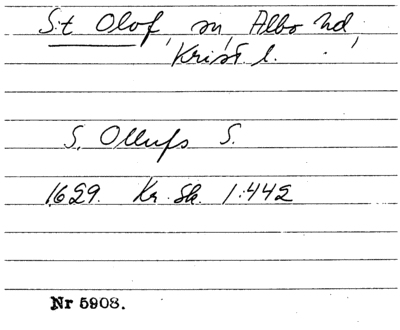 S:t Olof, sn, Albo hd,
Krist l.
S. Ollufs S.
1629. Kr. Sk. 1:442
Nr 5908.